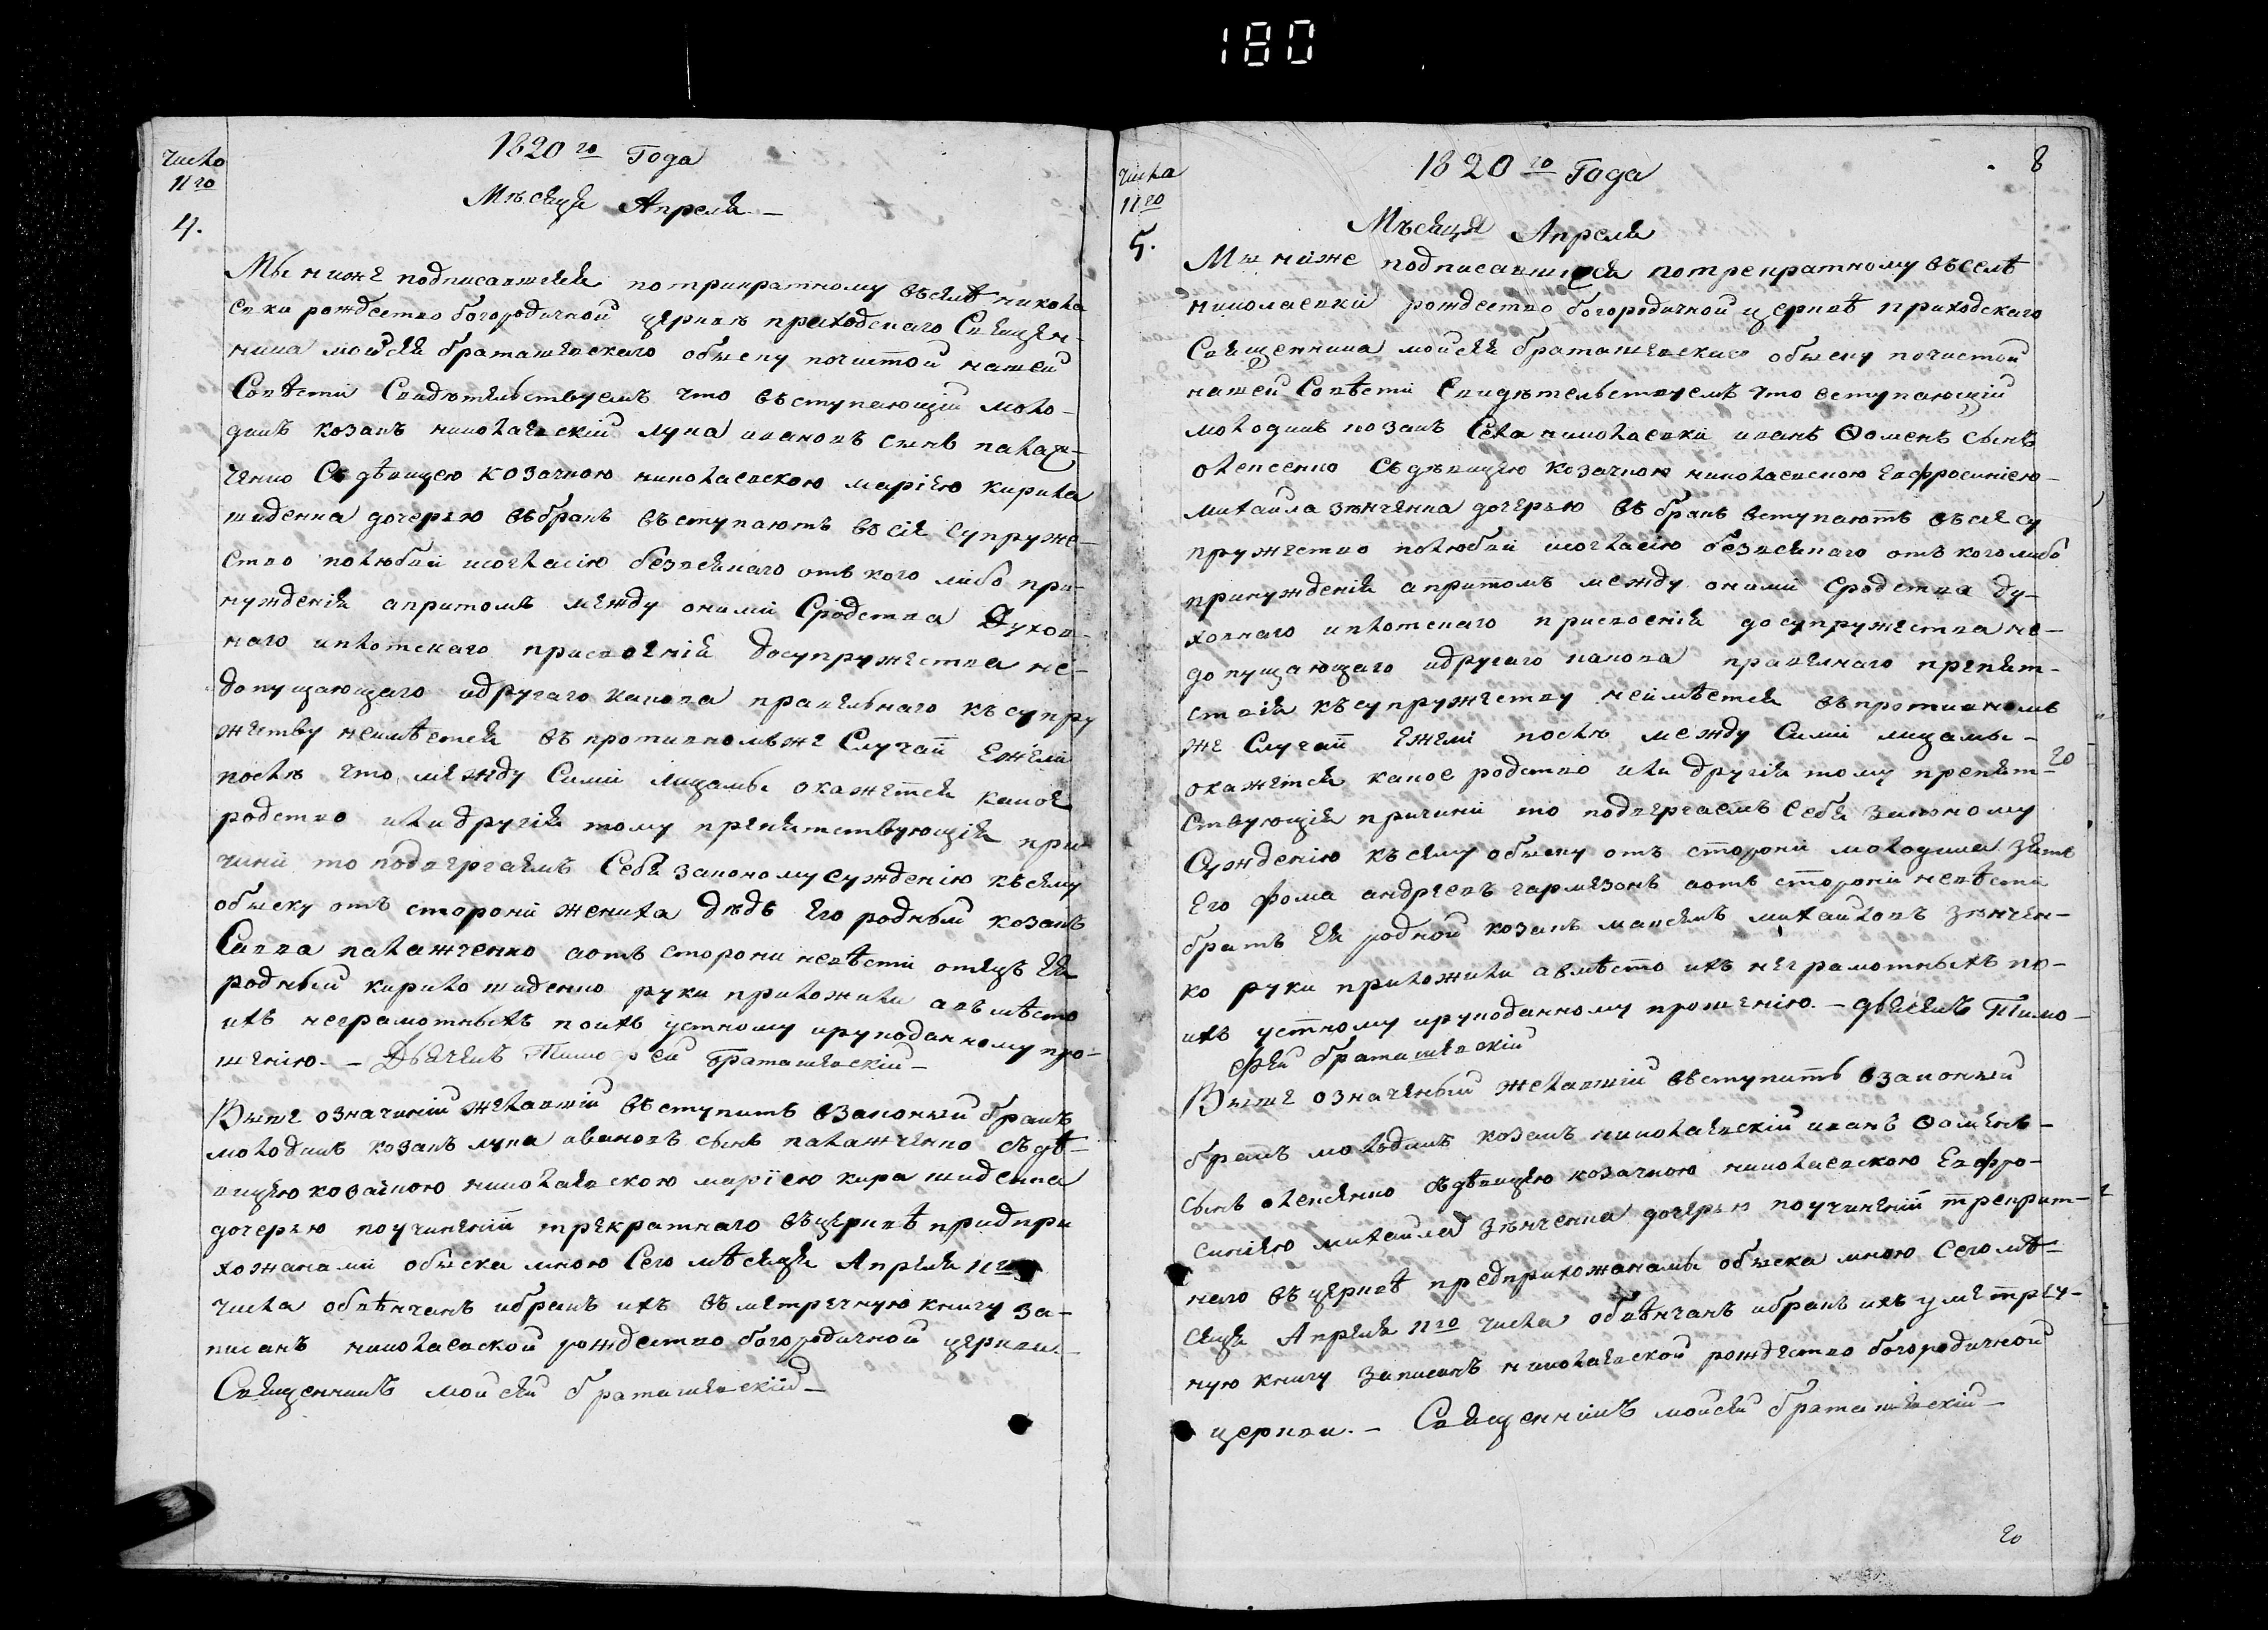 180
1820го Года
Числа
11го
Мѣсяця Апреля —
4.
Мы ниже подписавшіяся потрикратному въселѣ никола
евки рождество богородичной церквѣ приходскаго Священ-
ника моисея браташевскаго обыску почистой нашей
Совѣсти Свидѣтельствуемъ что въступающій моло-
дикъ козакъ николаевскій лука ивановъ сынъ палаж-
ченко Съ дѣвицею козачкою николаевскою маріею кирила
шиденка дочерью въбракъ въступаютъ въ сіе супруже-
ство полюбви исогласію безвсякаго отъ кого либо при-
нужденія апритомъ между оними Сродства Духов-
наго иплотскаго присвоенія досупружества не-
допущающаго идругаго канона правельнаго къ супру
жеству неимѣется въ противномъ же Случаи Ежели
послѣ что между Сими лицамы окажется какое
родство или другія тому препятствующія при-
чини то подвергаемъ Себя законому сужденію къ сему
обыску отъ сторони жениха дѣдъ Его родный козакъ
Савва палажченко аотъ сторони невѣсти отецъ Ея
родный кирило шиденко руки приложили авъ мѣсто
ихъ неграмотныхъ поихъ устному ирукоданному про-
шенію. — Дьячекъ Тимофей Браташевскій —
Выше означиній желавшій въступить взаконый бракъ
молодикъ козакъ лука ивановъ сынъ палажченко съ дѣ-
вицею козачкою николаевскою маріею кира шиденка
дочерью поучиненіи трекратнаго въ церквѣ придпри
хожанами обыска мною Сего мѣсяця Апреля 11го
числа обвѣнчанъ ибракъ ихъ въ метречную книгу за-
писанъ николаевской рождество богородичной церкви.
Священникъ моисей браташевскій —
1820го Года
8
Числа
11го
Мѣсяця Апреля
5.
Мы ниже подписавшіяся потрекратному въселѣ
николаевки рождество богородичной церквѣ приходскаго
Священника моисея браташевскаго обыску почистой
нашей Совѣсти Свидѣтельствуемъ что вступающій
молодикъ козакъ Села николаевки иванъ Ѳоменъ сынъ
олексенко Съ дѣвицею козачкою николаевскою Евфросиніею
михаила зѣнченка дочерью въ бракъ вступаютъ въ сіе су
пружество полюбви исогласію безвсякаго отъ кого либо
принужденія апритомъ между оними Сродства ду-
ховнаго иплотскаго присвоенія до супружества не-
допущающаго идругаго канона правелнаго препят-
ствія къ супружеству неимѣется въпротивномъ
же Случаи Ежели послѣ между Сими лицамы —
окажется какое родство или другія тому препят-
ствующія причини то подвергаемъ Себя законому
Сужденію къ сему обыску отъ сторони молодика зять
Его фома андреевъ гармазонъ аотъ сторони невѣсти
братъ Ея родной козакъ максимъ михайловъ зѣнчен-
ко руки приложили авмѣсто ихъ неграмотныхъ по-
ихъ устному ирукоданному прошенію. — дьячекъ Тимо-
фей браташевскій
Выше означеный желавшій въступить взаконый
бракъ молодикъ козакъ николаевскій иванъ Ѳоминъ —
сынъ олексенко съ дѣвицею козачкою николаевскою Евфро-
синіею михаила зѣнченка дочерью поучиненіи трекрат-
наго въ церквѣ предприхожанамы обыска мною Сего мѣ-
сяця Апреля 11го числа обвѣнчанъ ибракъ ихъ у метреч-
ную книгу записанъ николаевской рождество богородичной
церкви. — Священникъ моисей браташевскій —